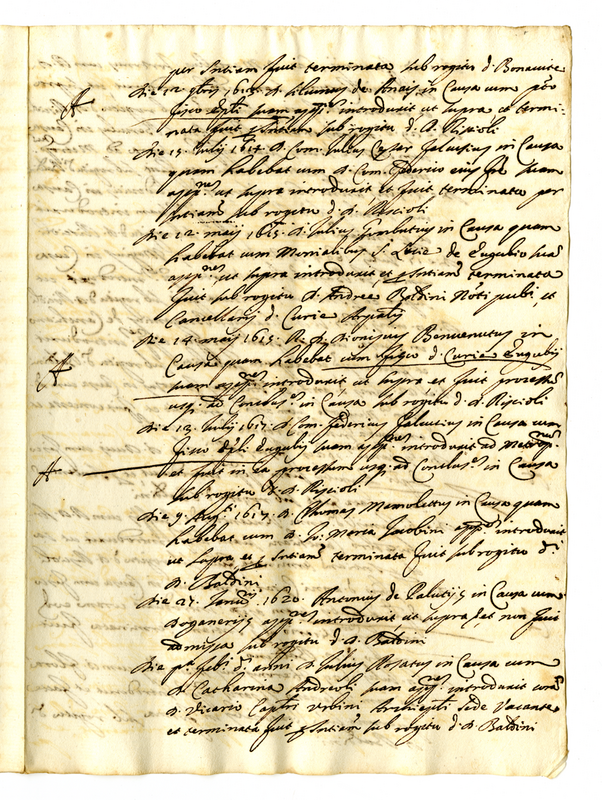 per sntiam fuit terminata sub rogitu d. Bonavite
die 12 9bris 1613. d. Silvinus de in Causa cum
fisco Epli suam appnē introduxit ut supra et termi-
nata fuit p sntiam sub rogitu d. d. Riscioli
die 15. Julij 1614 d. Com. Julius Cesar Galeutius in Causa
quam habebat cum d. Com. Federico eius suam
appnē ut supra introduxit et fuit terminata per
sntiam sub rogitu d. d. Riscioli
die 12. maij 1615. d. Julius in Causa quam
habebat cum Monialibus S. de Eugubio suā
appnē ut supra introduxit, et p sntiam terminata
fuit sub rogitu d. Andree Baldini Noti publi, et
Cancellarij d. Curie
die 14 maij 1615. R. d. Dionisius Benvenutus in
Causa quam habebat cum fisco d. Curie Eugubij
suam appnē introduxit ut supra et fuit processū
usq. ad Conclusnē in Causa sub rogitu d. d. Riscioli
die 13. Julij 1617 d. Com. Federicus Galeutius in Causa cum
fisco Epli Eugubij suam appnē introduxit ad Metropm
et fuit in ea processum usq. ad Conclusnē in Causa
sub rogitu d. d. Riscioli
die 9. 1617. d. Thomas Mamolettus in Causa quam
habebat cum d. Jo. Maria Jacobini appnē introduxit
ut supra et p sntiam terminata fuit sub rogitu d.
d. Baldini
die 27. Januarij 1620. Antonius de in Causa cum
appnē introduxit ut supra, sed non fuit
admissa sub rogitu d. d. Baldini
die pa febr. d. anni d. Julius Rosatus in Causa cum
d. Catharina Andreoli suam appnē introduxit corā
d. Vicario Caplri Urbini Archiepli sede vacante
et terminata fuit p sntiam sub rogitu d. d. Baldini